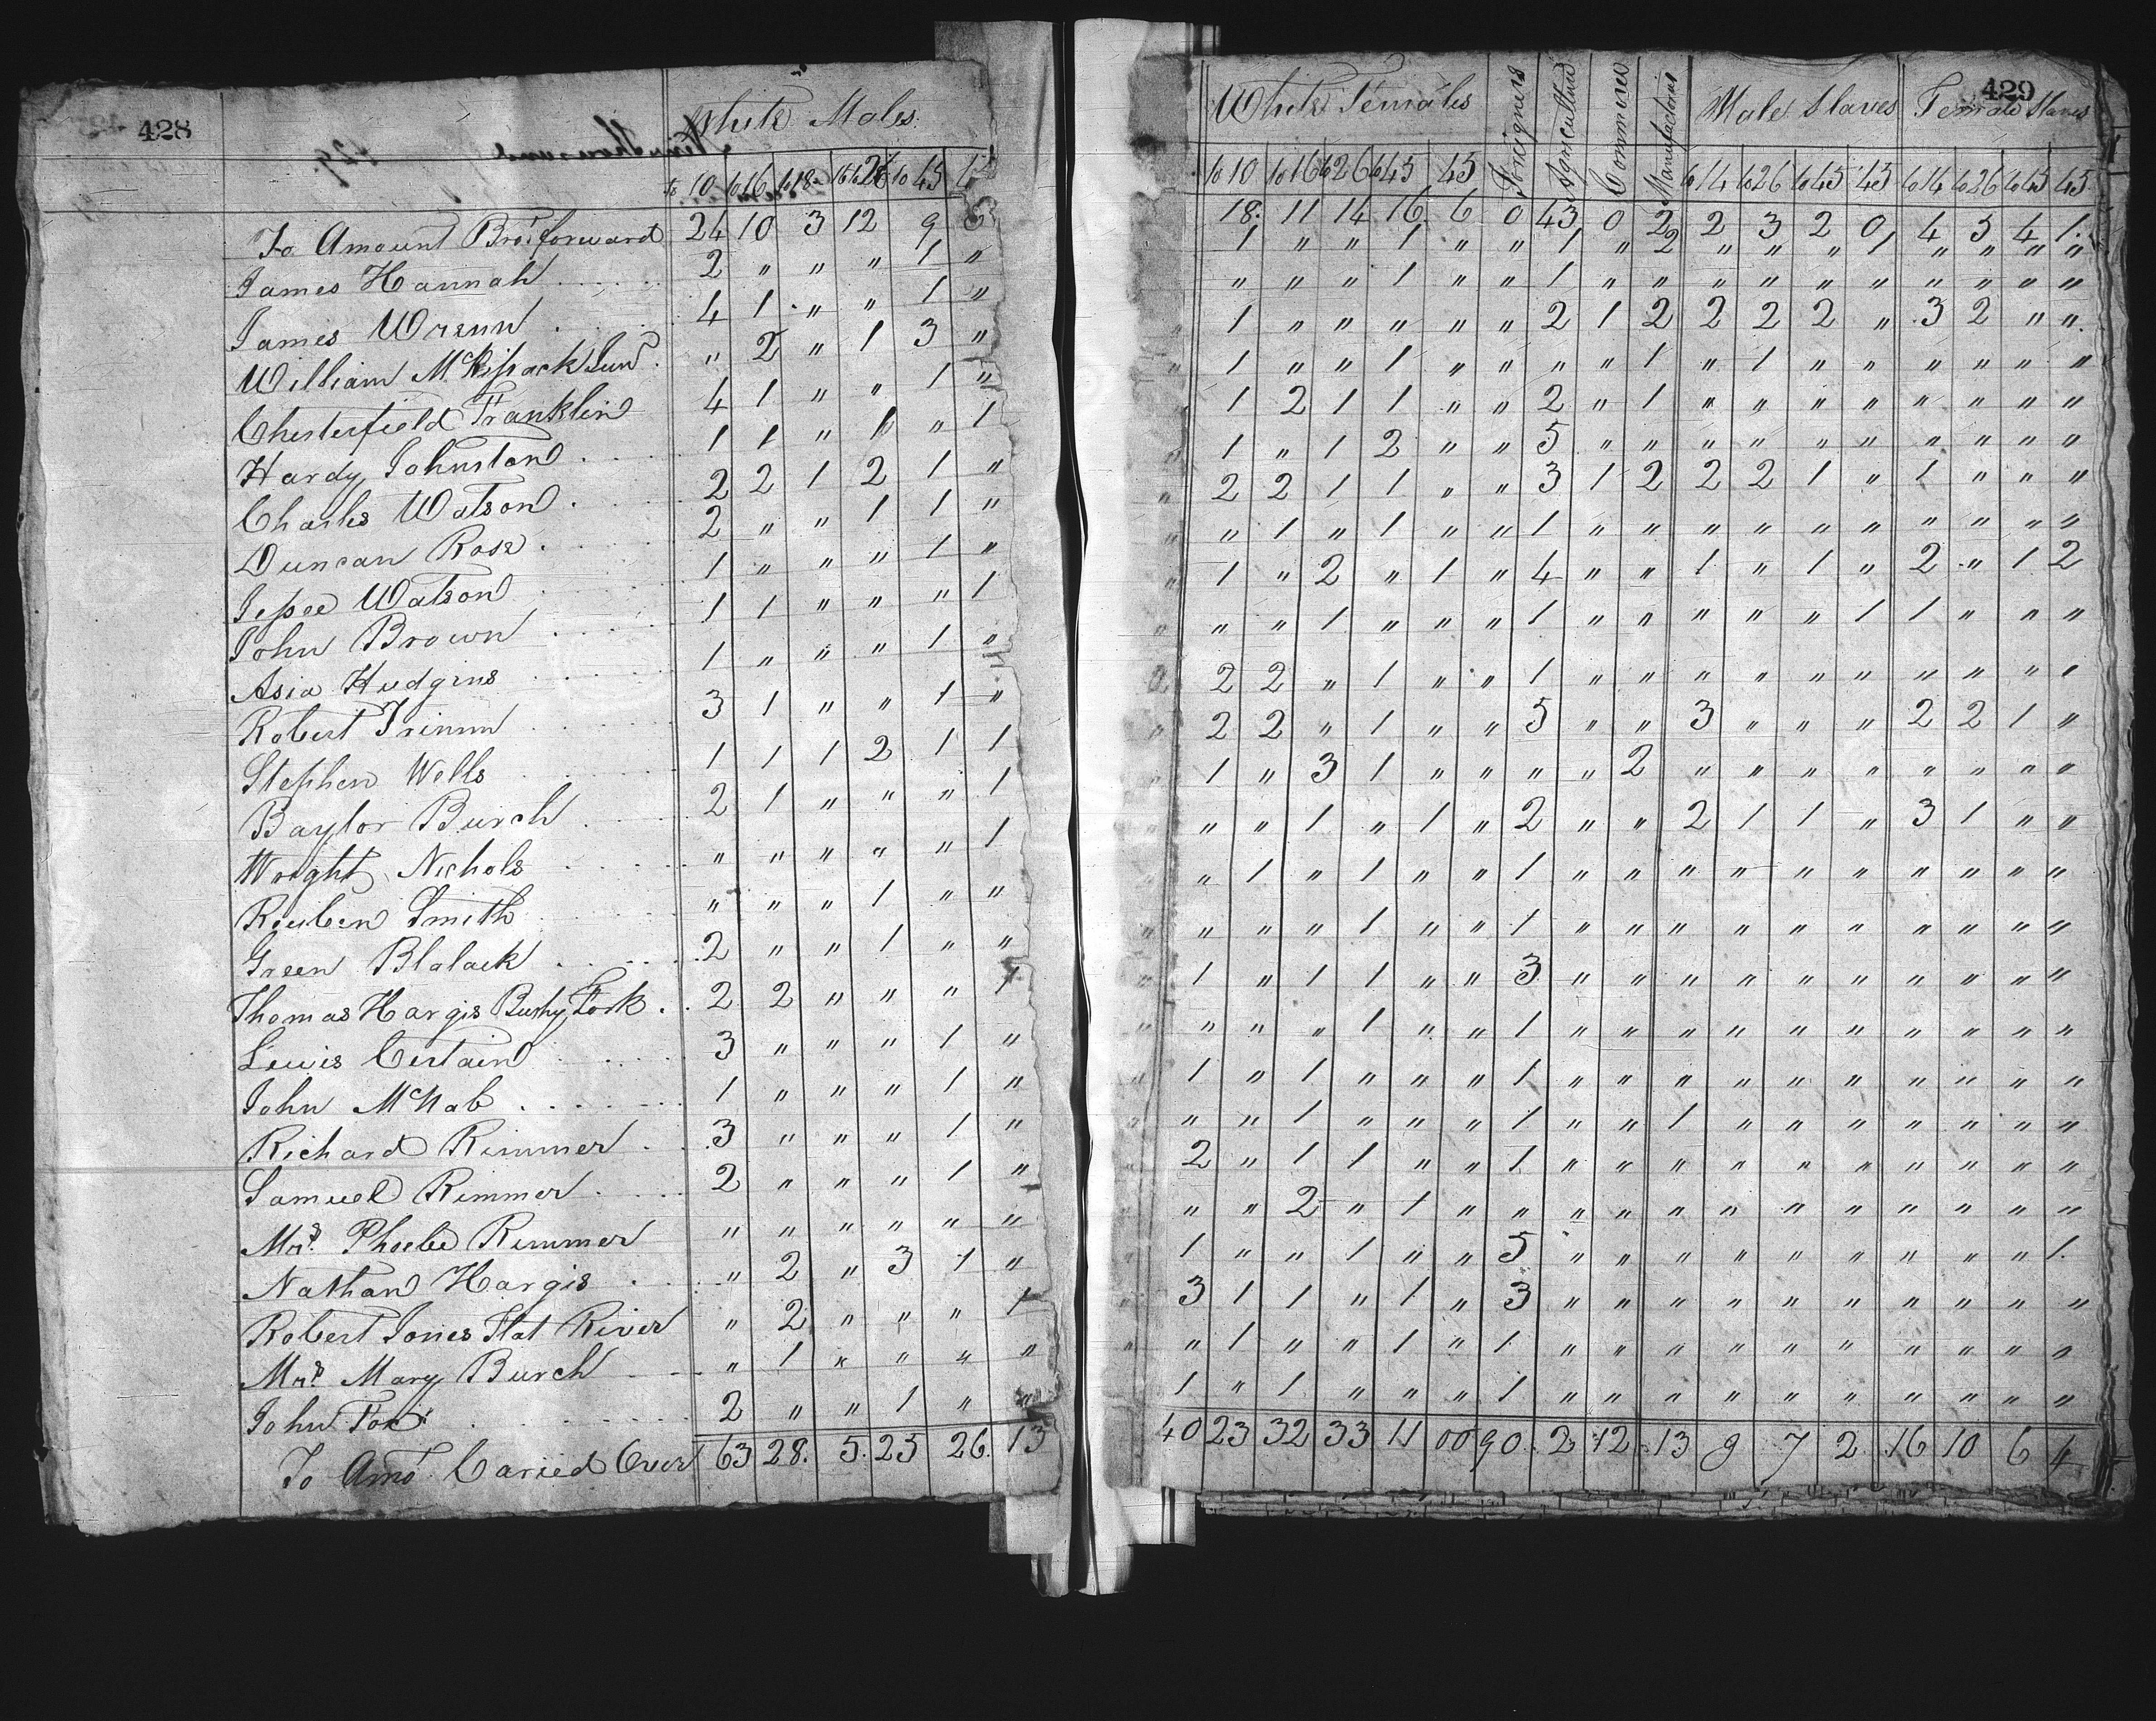 428
White Males
to 10 to 16 to 18 16 to 26 to 45
To Amount Bro.forward 24 10 3 12 9
James Hannah 2 " " " 1 "
James Wrenn 4 1 " " 1 "
William McKissack Sun " 2 " 1 3 "
Chesterfield Franklin 4 1 " " 1 "
Hardy Johnston 1 1 " 1 " 1
Charles Watson 2 2 1 2 1 "
Duncan Rose 2 " " 1 1 "
Jessee Watson 1 " " " 1 "
John Brown 1 1 " " " 1
Asia Hudgins 1 " " " 1 "
Robert Trimm 3 1 " " 1 "
Stephen Wells 1 1 1 2 1 1
Baylor Burch 2 1 " " " 1
Wright Nichols " " " " " 1
Reuben Smith " " " 1 " "
Green Blalack 2 " " 1 " "
Thomas Hargis Bushy Fork 2 2 " " " 1
Lewis Certain 3 " " " 1 "
John McNab 1 " " " 1 "
Richard Rimmer 3 " " " 1 "
Samuel Rimmer 2 " " " 1 "
Mrs. Phoebe Rimmer " " " " " "
Nathan Hargis " 2 " 3 1 "
Robert Jones Flat River " 2 " " " 1
Mrs. Mary Burch " 1 " " " "
John Fox 2 " " 1 " "
To Amo. Caried Over 63 28. 5. 25 26. 13
429
White Females Foreigners Agriculture Commerce Manufactories Male Slaves Female Slaves
to 10 to 16 to 26 to 45 45 to 14 to 26 to 45 45 to 14 to 26 to 45 45
18. 11 14 16 6 0 43 0 2 2 3 2 0 4 5 4 1.
1 " " 1 " " 1 " 2 " " " 1 " " " "
" " " 1 " " 1 " " " " " " " " " "
1 " " " " " 2 1 2 2 2 2 " 3 2 " "
1 " " 1 " " " " 1 " 1 " " " " " "
1 2 1 1 " " 2 " 1 " " " " " " " "
1 " 1 2 " " 5 " " " " " " " " " "
2 2 1 1 " " 3 1 2 2 2 1 " 1 " " "
" 1 " 1 " " 1 " " " " " " " " " "
1 " 2 " 1 " 4 " " 1 " 1 " 2 " 1 2
" " 1 " " " 1 " " " " " 1 1 " " "
2 2 " 1 " " 1 " " " " " " " " " "
2 2 " 1 " " 5 " " 3 " " " 2 2 1 "
1 " 3 1 " " " " 2 " " " " " " " "
" " 1 " 1 " 2 " " 2 1 1 " 3 1 " "
" 1 " 1 " " 1 " " " " " " " " " "
" " " 1 " " 1 " " " " " " " " " "
1 " 1 1 " " 3 " " " " " " " " " "
" " " 1 " " 1 " " " " " " " " " "
1 " 1 " " " 1 " " " " " " " " " "
" " 1 " " " 1 " " 1 " " " " " " "
2 " 1 1 " " 1 " " " " " " " " " "
" " 2 " 1 " " " " " " " " " " " "
1 " " 1 " " 5 " " " " " " " " " 1.
3 1 1 " 1 " 3 " " " " " " " " " "
" 1 " " 1 " 1 " " " " " " " " " "
1 " 1 " " " 1 " " " " " " " " " "
40 23 32 33 11 00 90 2 12 13 9 7 2 16 10 6 4